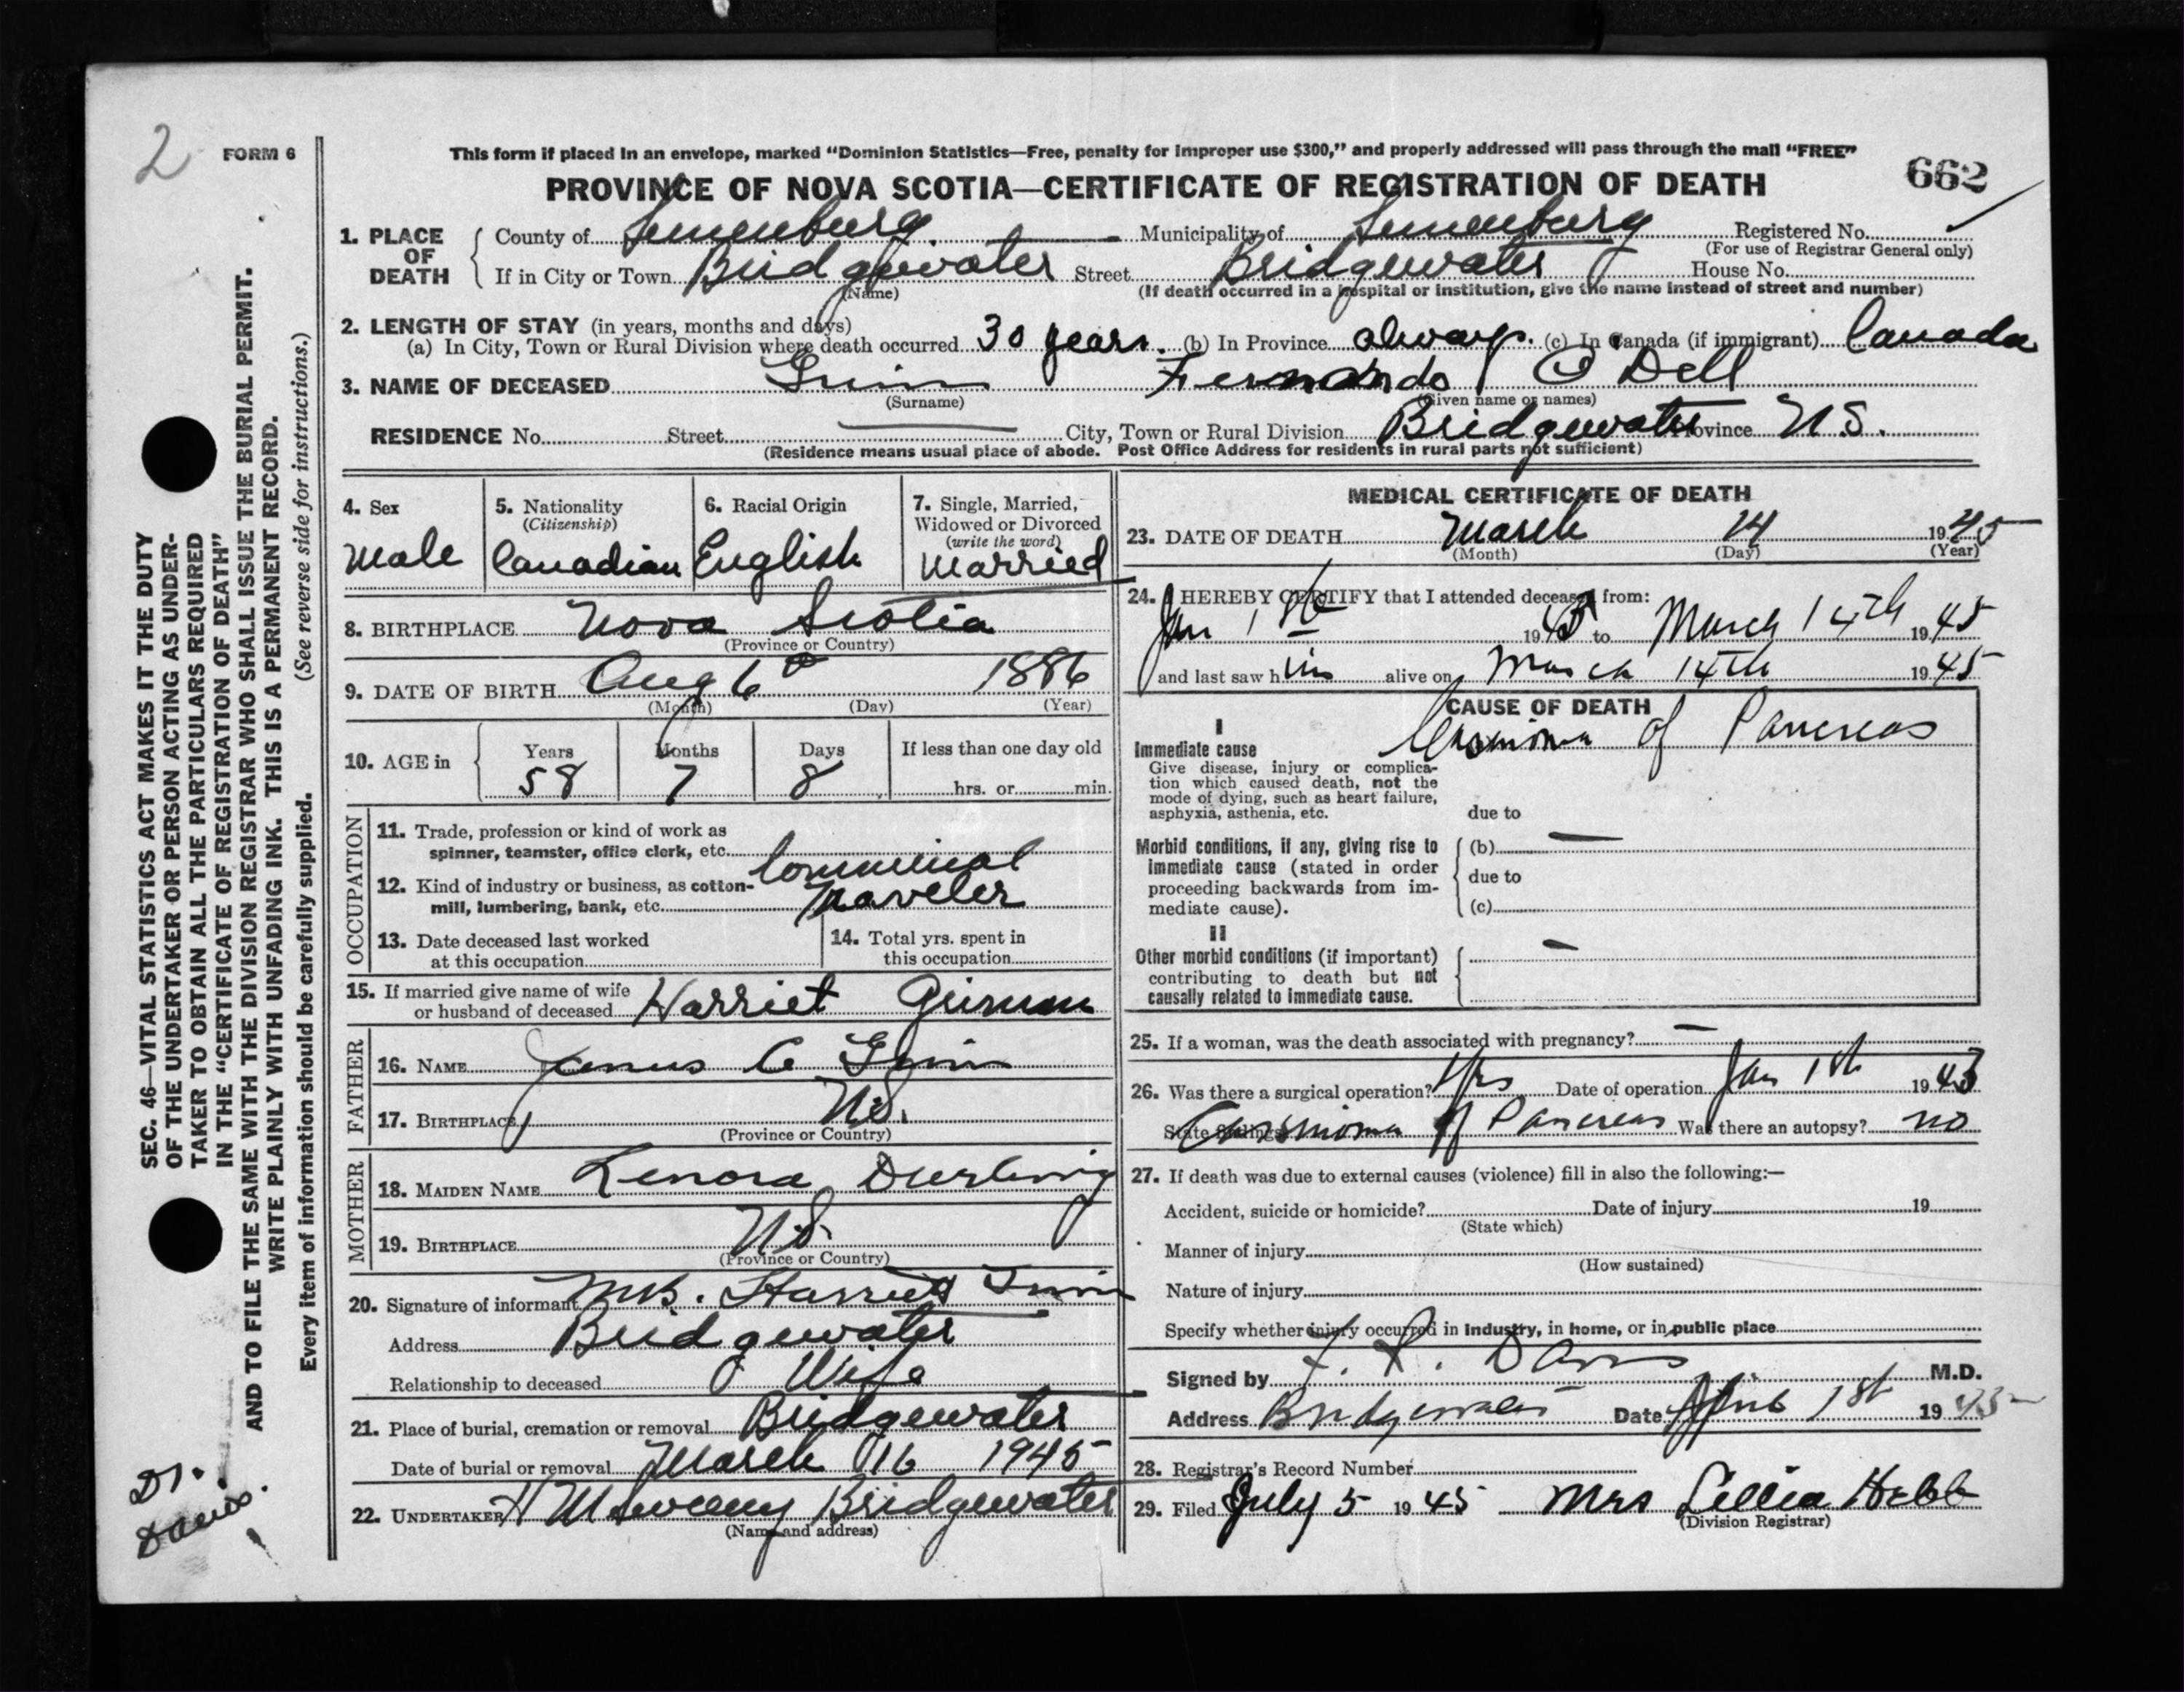 2
FORM 6
This form if placed in an envelope, marked “Dominion Statistics—Free, penalty for improper use $300,” and properly addressed will pass through the mail “FREE”
PROVINCE OF NOVA SCOTIA—CERTIFICATE OF REGISTRATION OF DEATH
662
1. PLACE OF DEATH
County of Lunenburg Municipality of Lunenburg Registered No.
(For use of Registrar General only)
If in City or Town Bridgewater Street Bridgewater House No.
(Name) (If death occurred in a hospital or institution, give the name instead of street and number)
2. LENGTH OF STAY (in years, months and days)
(a) In City, Town or Rural Division where death occurred 30 years. (b) In Province always. (c) In Canada (if immigrant) Canada
3. NAME OF DECEASED Fernando O Dell
(Surname) (Given name or names)
RESIDENCE No. Street City, Town or Rural Division Bridgewater Province N.S.
(Residence means usual place of abode. Post Office Address for residents in rural parts not sufficient)
4. Sex
Male
5. Nationality
(Citizenship)
Canadian
6. Racial Origin
English
7. Single, Married,
Widowed or Divorced
(write the word)
Married
8. BIRTHPLACE Nova Scotia
(Province or Country)
9. DATE OF BIRTH Aug 6 1886
(Month) (Day) (Year)
10. AGE in
Years Months Days If less than one day old
58 7 8 hrs. or min.
OCCUPATION
11. Trade, profession or kind of work as
spinner, teamster, office clerk, etc.
Commercial
12. Kind of industry or business, as cotton-
mill, lumbering, bank, etc. Traveler
13. Date deceased last worked
at this occupation
14. Total yrs. spent in
this occupation
15. If married give name of wife
or husband of deceased Harriet
FATHER
16. NAME James
17. BIRTHPLACE N.S.
(Province or Country)
MOTHER
18. MAIDEN NAME Lenora Durling
19. BIRTHPLACE N.S.
(Province or Country)
20. Signature of informant Mrs. Harriet
Address Bridgewater
Relationship to deceased Wife
21. Place of burial, cremation or removal Bridgewater
Date of burial or removal March 16 1945
22. UNDERTAKER Bridgewater
(Name and address)
MEDICAL CERTIFICATE OF DEATH
23. DATE OF DEATH March 14 1945
(Month) (Day) (Year)
24. I HEREBY CERTIFY that I attended deceased from:
Jan 1st 1943 to March 14th 1945
and last saw him alive on March 14th 1945
CAUSE OF DEATH
I
Immediate cause
Carsinoma of Pancreas
Give disease, injury or complica-
tion which caused death, not the
mode of dying, such as heart failure,
asphyxia, asthenia, etc.
due to
Morbid conditions, if any, giving rise to
immediate cause (stated in order
proceeding backwards from im-
mediate cause).
(b)
due to
(c)
II
Other morbid conditions (if important)
contributing to death but not
causally related to immediate cause.
25. If a woman, was the death associated with pregnancy?
26. Was there a surgical operation? Yes Date of operation Jan 1st 1943
State findings Carsinoma of Pancreas Was there an autopsy? no
27. If death was due to external causes (violence) fill in also the following:—
Accident, suicide or homicide? Date of injury 19
(State which)
Manner of injury
(How sustained)
Nature of injury
Specify whether injury occurred in industry, in home, or in public place
Signed by F. R. Davis M.D.
Address Bridgewater Date April 1st 1945
28. Registrar's Record Number
29. Filed July 5 1945 Mrs Lillia Hebb
(Division Registrar)
SEC. 46—VITAL STATISTICS ACT MAKES IT THE DUTY
OF THE UNDERTAKER OR PERSON ACTING AS UNDER-
TAKER TO OBTAIN ALL THE PARTICULARS REQUIRED
IN THE “CERTIFICATE OF REGISTRATION OF DEATH”
AND TO FILE THE SAME WITH THE DIVISION REGISTRAR WHO SHALL ISSUE THE BURIAL PERMIT.
WRITE PLAINLY WITH UNFADING INK. THIS IS A PERMANENT RECORD.
Every item of information should be carefully supplied. (See reverse side for instructions.)
Dr.
Davis.